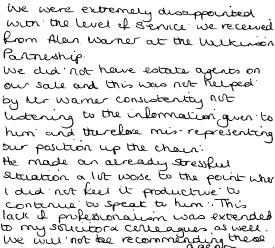 We were extremely disappointed
with the level of service we received
from Alan Warner at the Wilkinson
Partnership.
We did not have estate agents on
our sale and this was not helped
by Mr Warner consistently not
listening to the information given to
him and therefore mis-representing
our position up the chain.
He made an already stressful
situation a lot worse to the point where
I did not feel it productive to
continue to speak to him. This
lack of professionalism was extended
to my solicitors colleagues as well.
We will not be recommending these